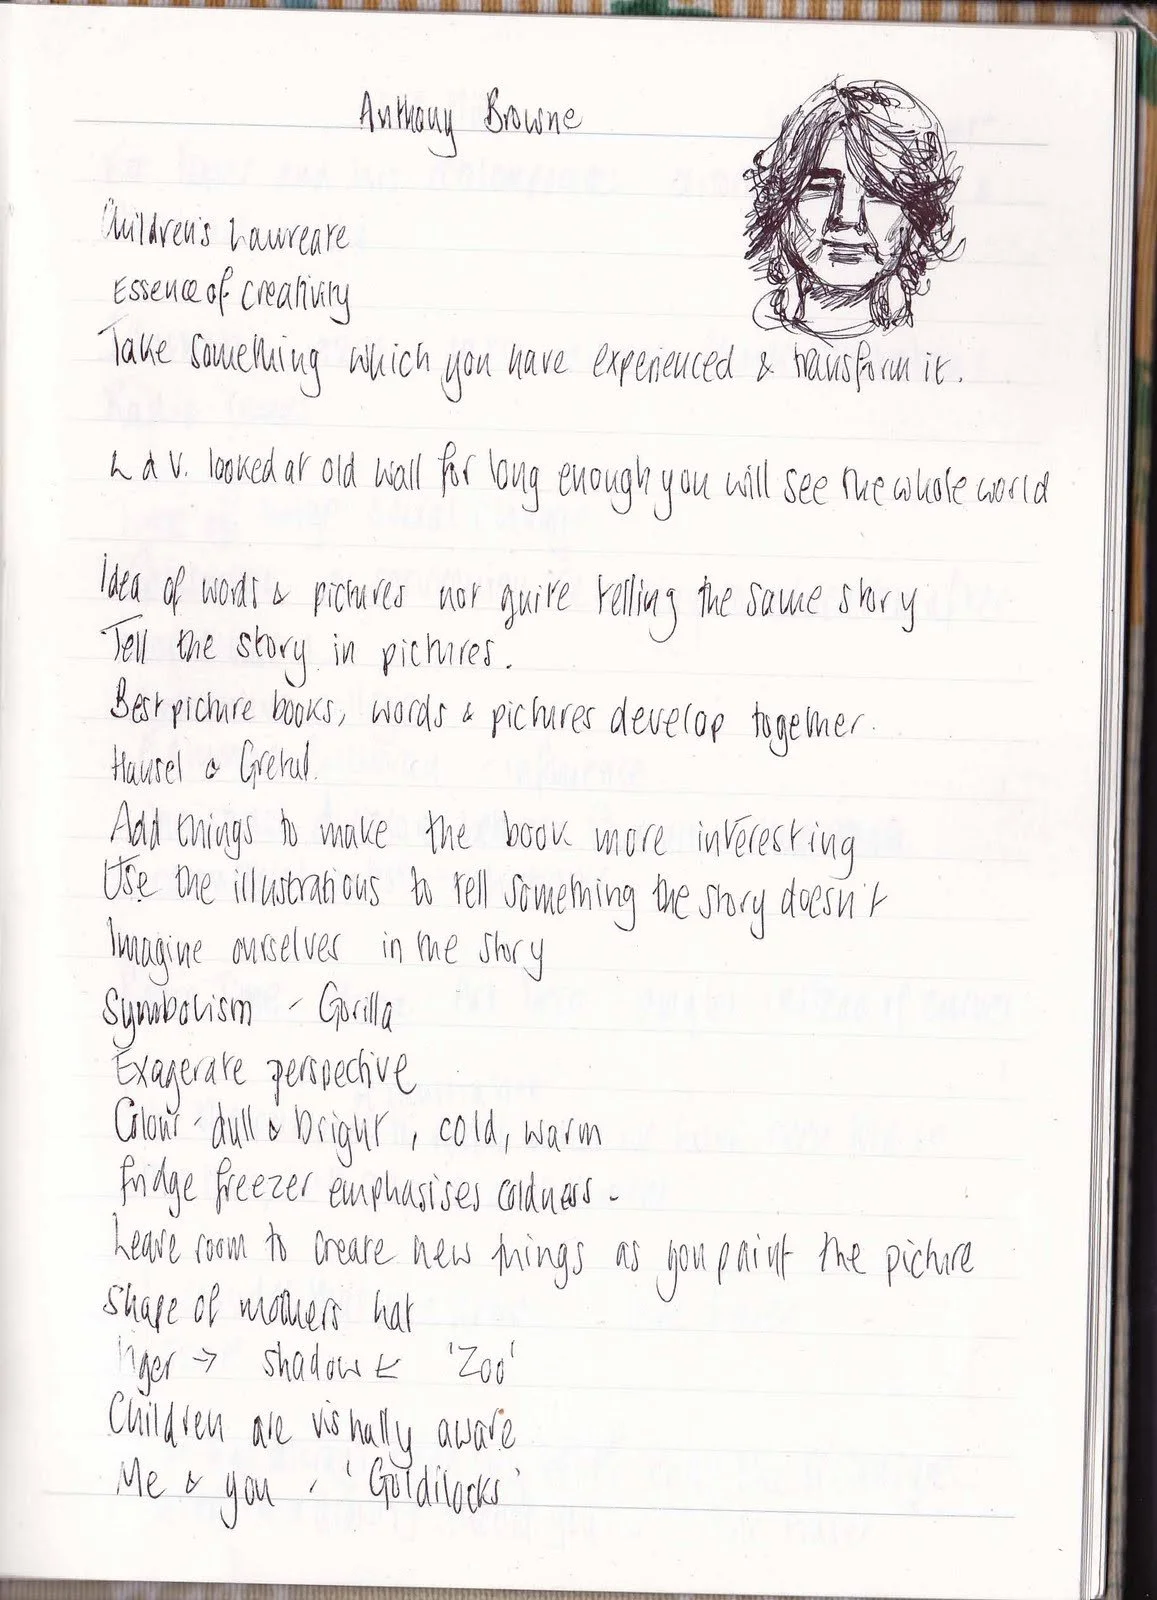 Anthony Browne
Children's Laureate
Essence of creativity
Take something which you have experienced & transform it.
L d V. looked at old wall for long enough you will see the whole world
Idea of words & pictures not quite telling the same story
Tell the story in pictures.
Best picture books, words & pictures develop together.
Hansel & Gretul.
Add things to make the book more interesting
Use the illustrations to tell something the story doesn't
Imagine ourselves in the story
Symbolism - Gorilla
Exagerate perspective
Colour - dull & bright, cold, warm
Fridge freezer emphasises coldness -
Leave room to create new things as you paint the picture
Shape of mothers hat
Tiger → shadow ← 'Zoo'
Children are visually aware
Me & you - 'Goldilocks'